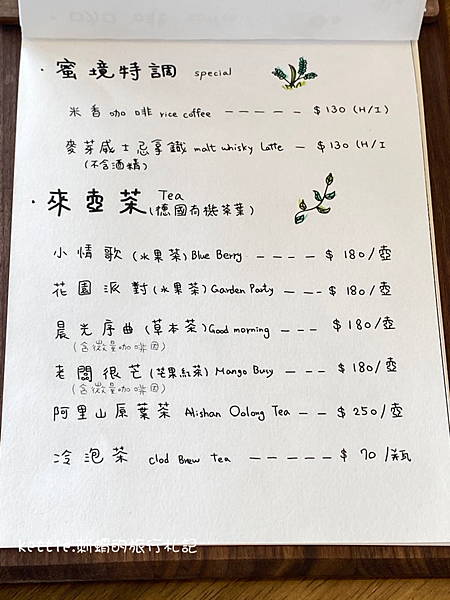 · 蜜境特調 special
米香咖啡 rice coffee ----- $130 (H/I)
麥芽威士忌拿鐵 malt whisky latte - $130 (H/I
(不含酒精)
· 來壺茶 Tea (德國有機茶葉)
小情歌 (水果茶) Blue Berry ---- $ 180/壺
花園派對 (水果茶) Garden Party --- $ 180/壺
晨光序曲 (草本茶) Good morning --- $180/壺
(含微量咖啡因)
老闆很芒 (芒果紅茶) Mango Busy --- $180/壺
(含微量咖啡因)
阿里山原葉茶 Alishan Oolong Tea -- $250/壺
冷泡茶 Clod Brew tea ----- $ 70 /瓶
kettle.刺蝟的旅行札記